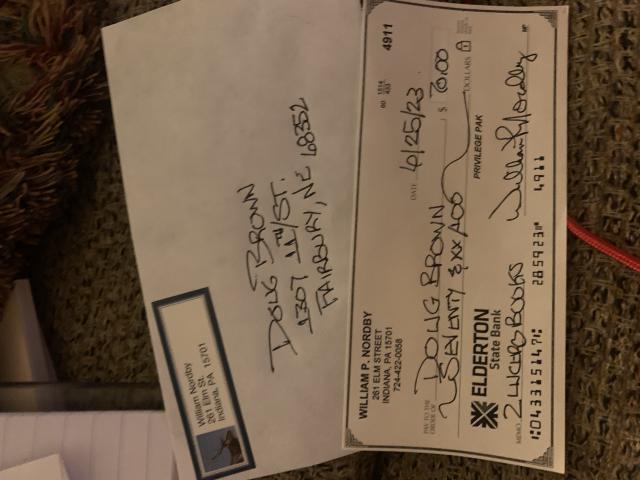 William Nordby
261 Elm St.
Indiana, PA 15701
DOUG BROWN
1307 11TH/ST.
FAIRBURY, NE 68352
WILLIAM P. NORDBY
261 ELM STREET
INDIANA, PA 15701
724-422-0058
4911
DATE 4/25/23
PAY TO THE
ORDER OF DOUG BROWN $ 70.00
SEVENTY & XX/100 DOLLARS
ELDERTON
State Bank
PRIVILEGE PAK
MEMO 2 BOOKS William P Nordby
4911